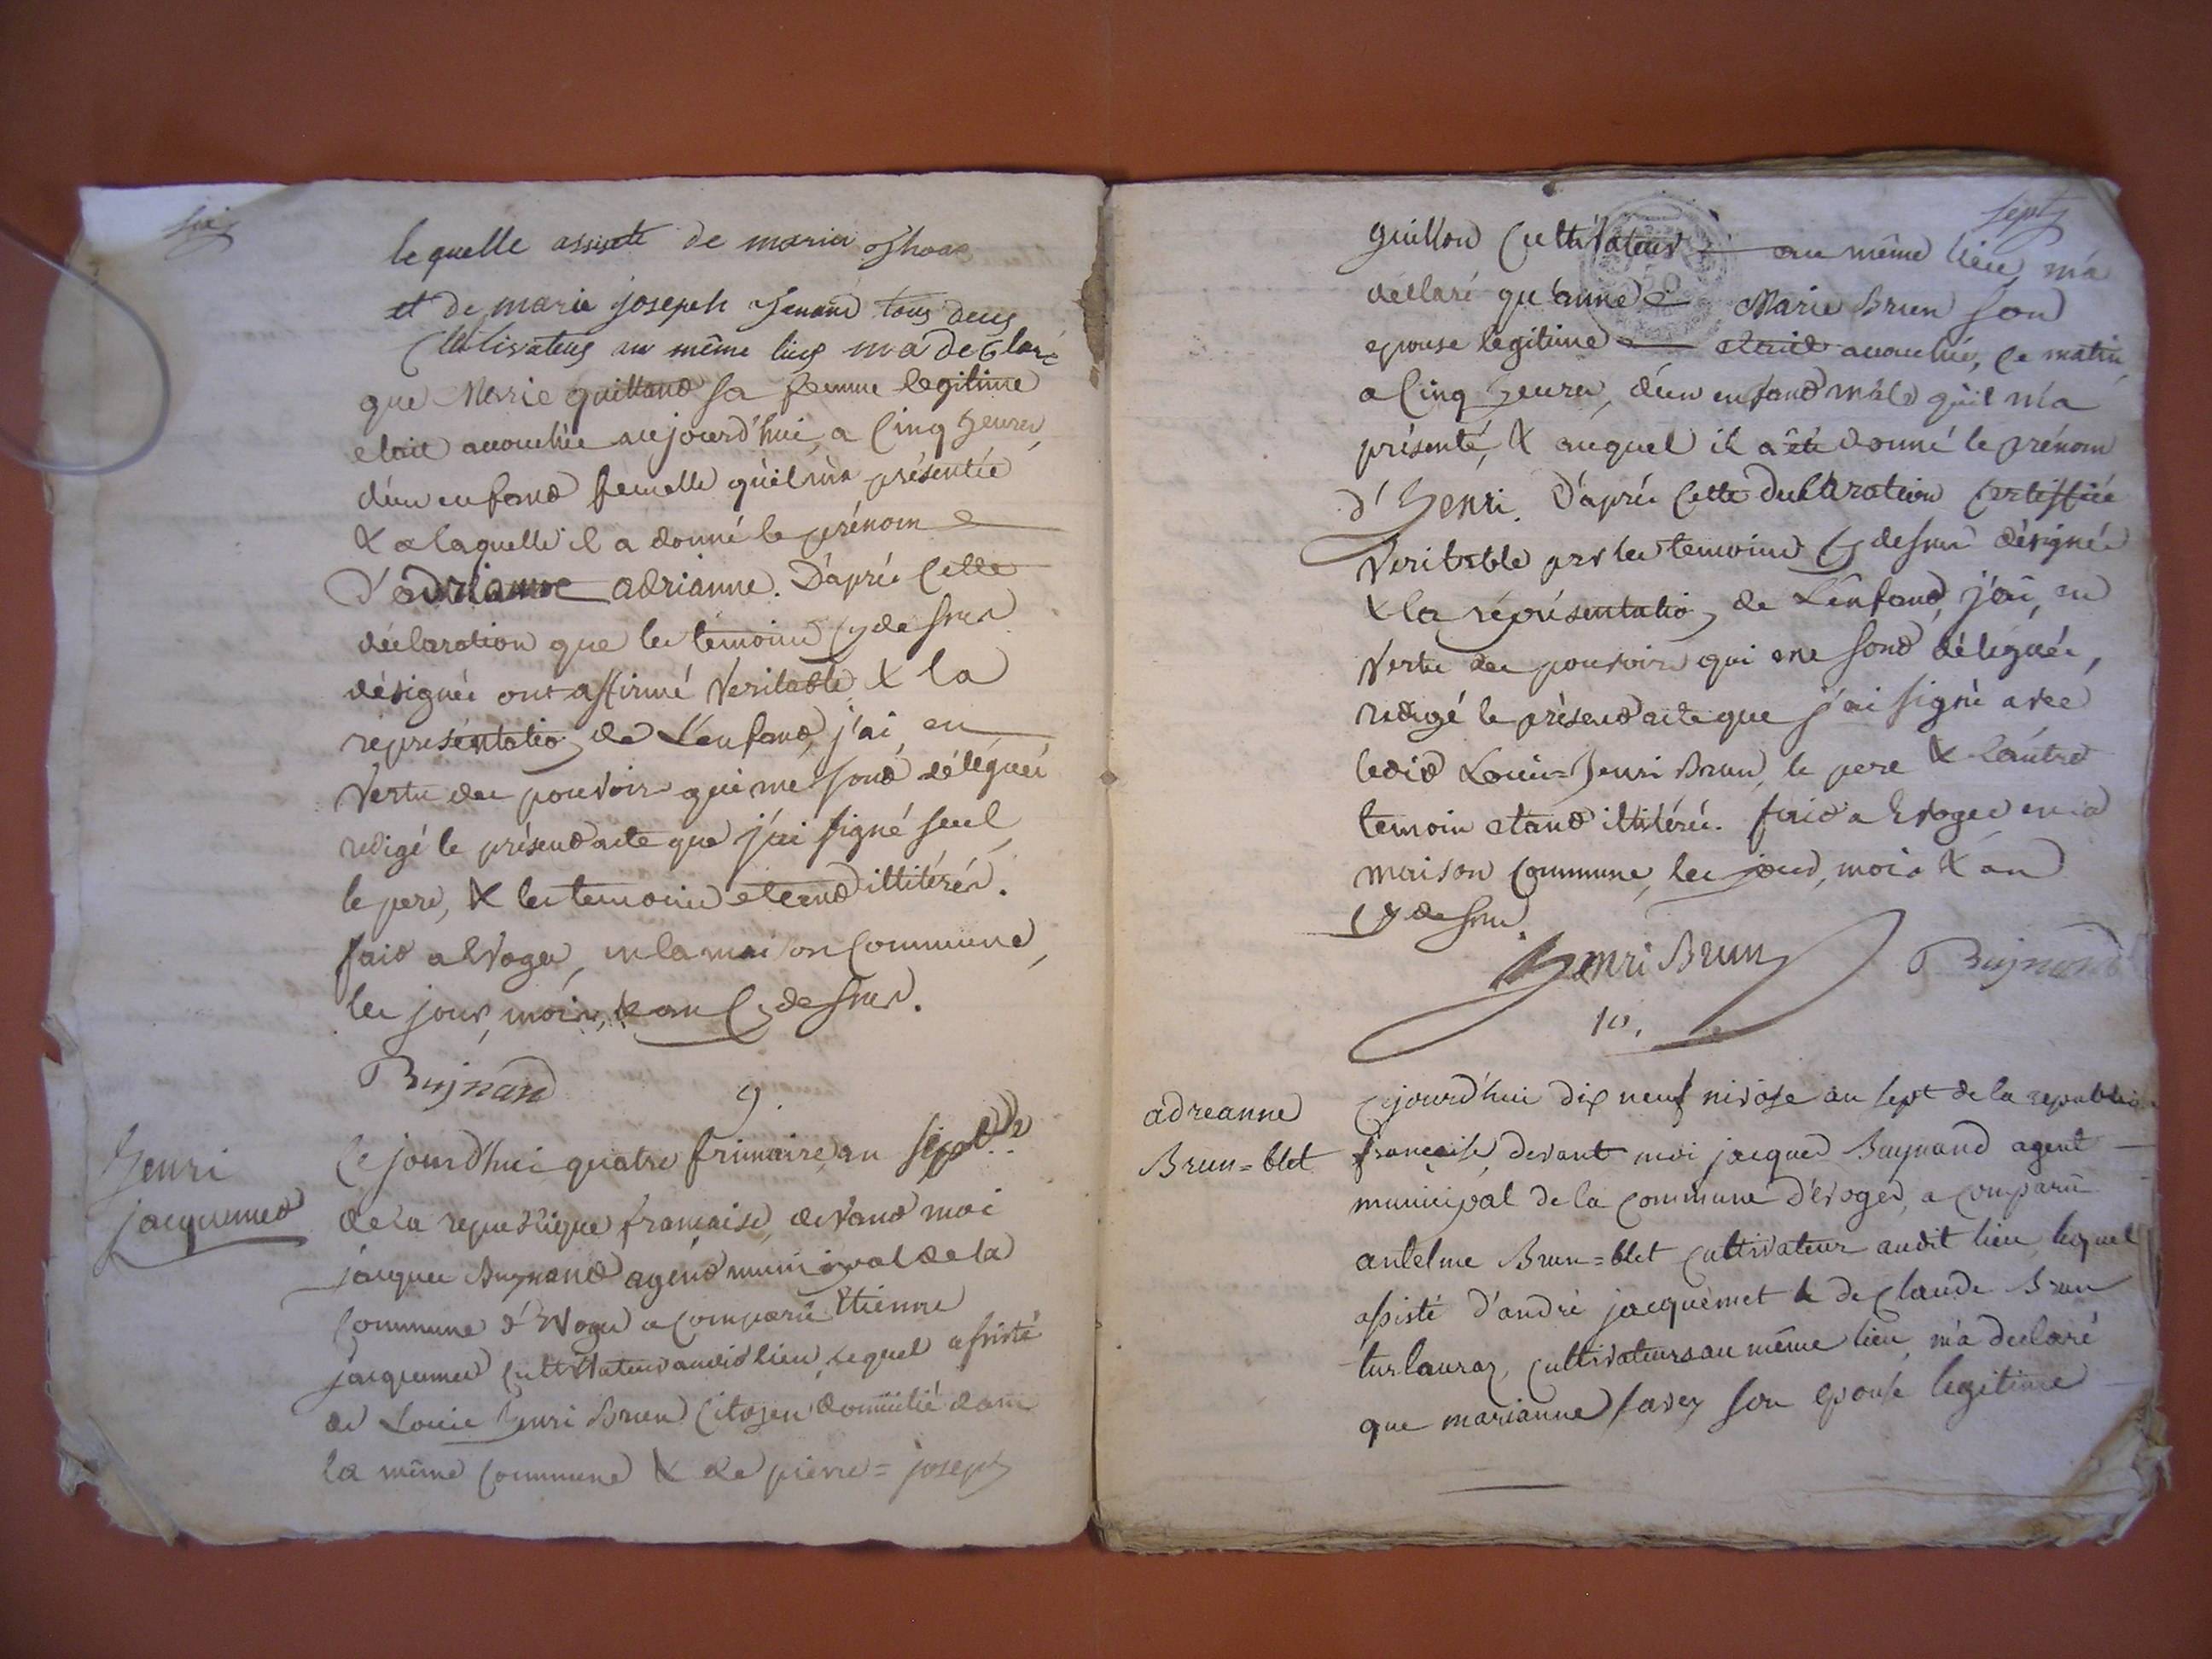 six
lequelle assisté de maria
et de marie joseph tous deux
Cultivateurs au même lieu m'a declaré
que Marie guilland sa femme legitime
etait accouchée aujourd'hui a Cinq heures,
d'un enfand femelle qu'il m'a présentée
& a laquelle il a donné le prénom
D'adrianne adrianne. D'après Cette
déclaration que les temoins Cy dessus
désignés ont affirmé Veritable & la
représentatio de L'enfand, j'ai, en
Vertu des pouvoirs qui me sond délégués
redigé le présend acte que j'ai signé seul,
le pere, & les temoins etand illitérés.
faid a Evoges, en la maison Commune,
les jour, mois, & an Cy dessus.
Bujnand
9.
Henri
jacquemed
Cejourd'hui quatre frimaire, an sept
de la republique française, devand moi
jacques Buynand agend municipal de la
Commune d'Evoges a comparû Etienne
jacquemed Cultivateur audid lieu, Lequel assisté
de Louis henri Brun Citoyen domicilié dans
la même Commune & de pierre = joseph
sept
guillon Cultivateur au même lieu, m'a
déclaré qu'anne Marie Brun son
epouse legitime etaid accouchée, Ce matin
a Cinq heures, d'un enfand mâle qu'il m'a
présenté, & auquel il a été donné le prénom
d'Henri. D'après Cette declaration Certiffiée
Veritable par les temoins Cy dessus désignés
& la représentatio de L'enfand, j'ai, en
Vertu des pouvoirs qui me sond délégués,
redigé le présend acte que j'ai signé avec
ledid Louis = henri Brun, le pere & l'autre
temoin etand illitérés. faid a Evoges en la
maison Commune, les jour, mois & an
Cy dessus.
henri Brun Bujnand
10.
adreanne
Brun=blet
Cejourd'hui dix neuf nivôse an sept de la republique
française, devant moi jacques Buynand agent
municipal de la Commune d'évoges, a comparû
antelme Brun=blet Cultivateur audit lieu lequel
assisté d'andré jacquemet & de Claude Brun
turlauraz, Cultivateurs au même lieu, m'a declaré
que marianne savey son épouse legitime